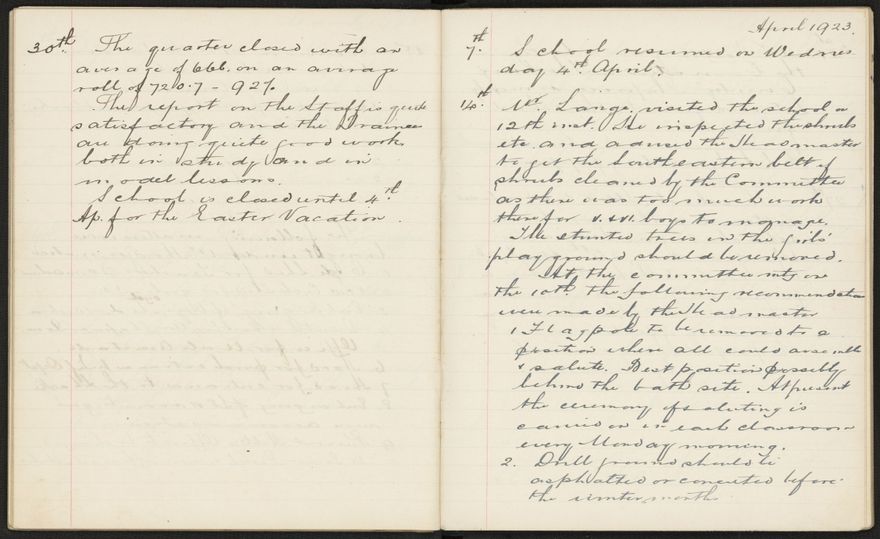 30th. The quarter closed with an
average of 666. on an average
roll of 720.7 - 92%
The report on the Staff is quite
satisfactory and the Trainees
are doing quite good work
both in study and in
model lessons.
School is closed until 4th
Ap. for the Easter Vacation.
April 1923.
7th. School resumed on Wednes
day 4th April.
14th. Mr. Lange visited the school on
12th inst. He inspected the shrubs
etc. and advised the Headmaster
to get the South eastern belt of
shrubs cleaned by the Committee
as there was too much work
there for V. & VI. boys to manage.
The stunted trees in the girls'
playground should be removed.
At the committee mtg on
the 10th the following recommendations
were made by the Headmaster
1 Flagpole to be removed to a
position where all could assemble
& salute. Best position possibly
behind the bath site. At present
the ceremony of saluting is
carried on in each classroom
every Monday morning.
2. Drill ground should be
asphalted or concreted before
the winter months.